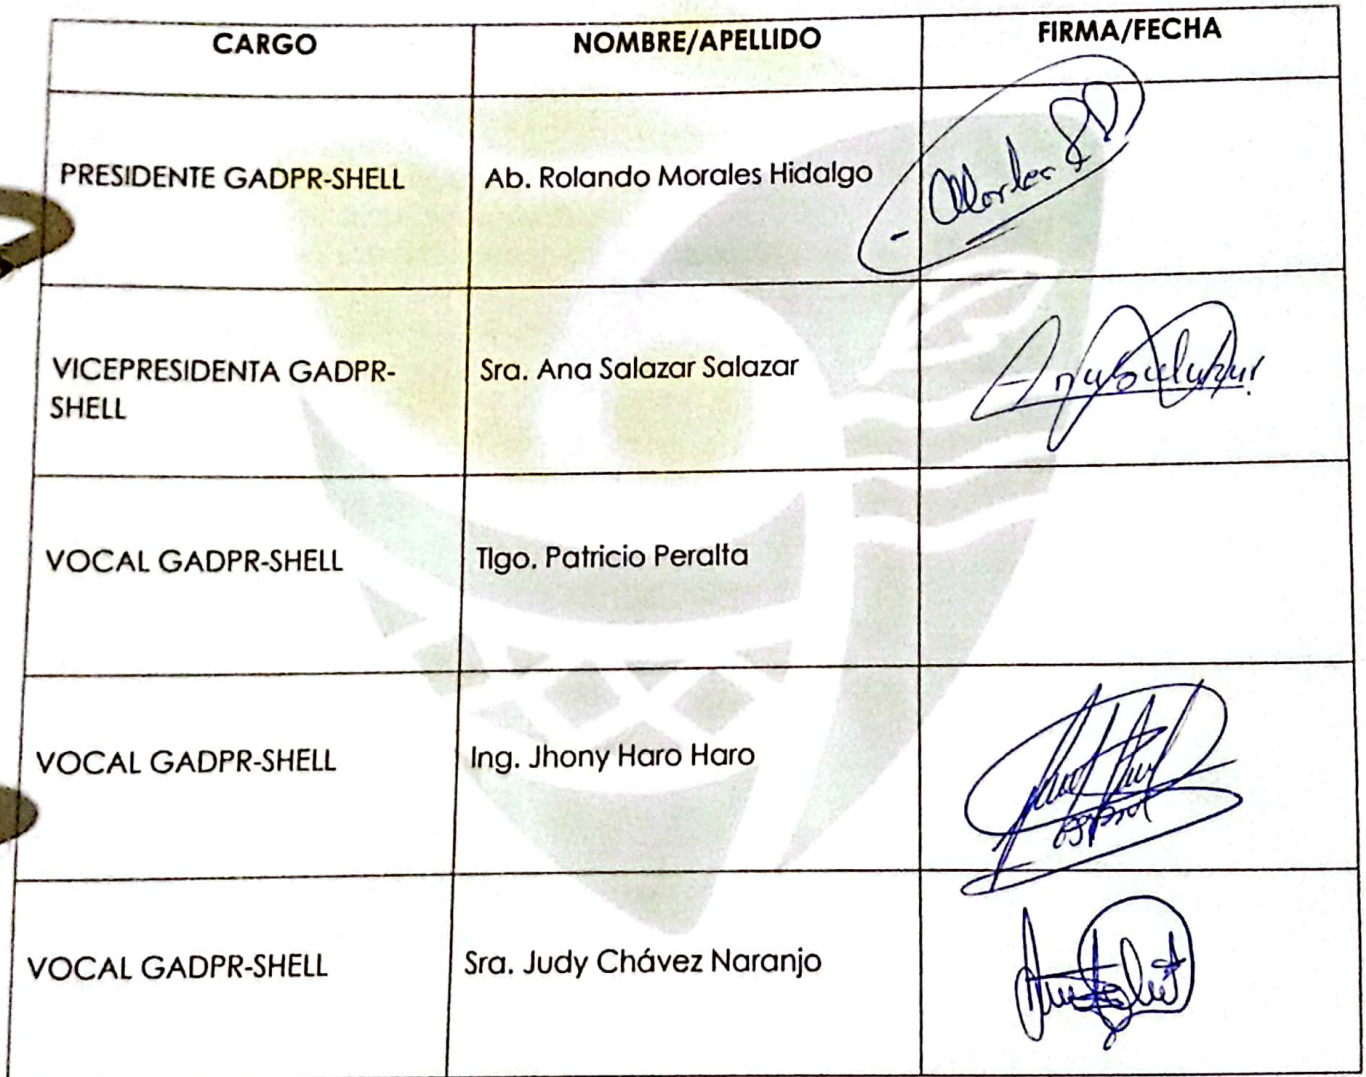 CARGO NOMBRE/APELLIDO FIRMA/FECHA
PRESIDENTE GADPR-SHELL Ab. Rolando Morales Hidalgo
VICEPRESIDENTA GADPR-
SHELL
Sra. Ana Salazar Salazar
VOCAL GADPR-SHELL Tlgo. Patricio Peralta
VOCAL GADPR-SHELL Ing. Jhony Haro Haro
VOCAL GADPR-SHELL Sra. Judy Chávez Naranjo